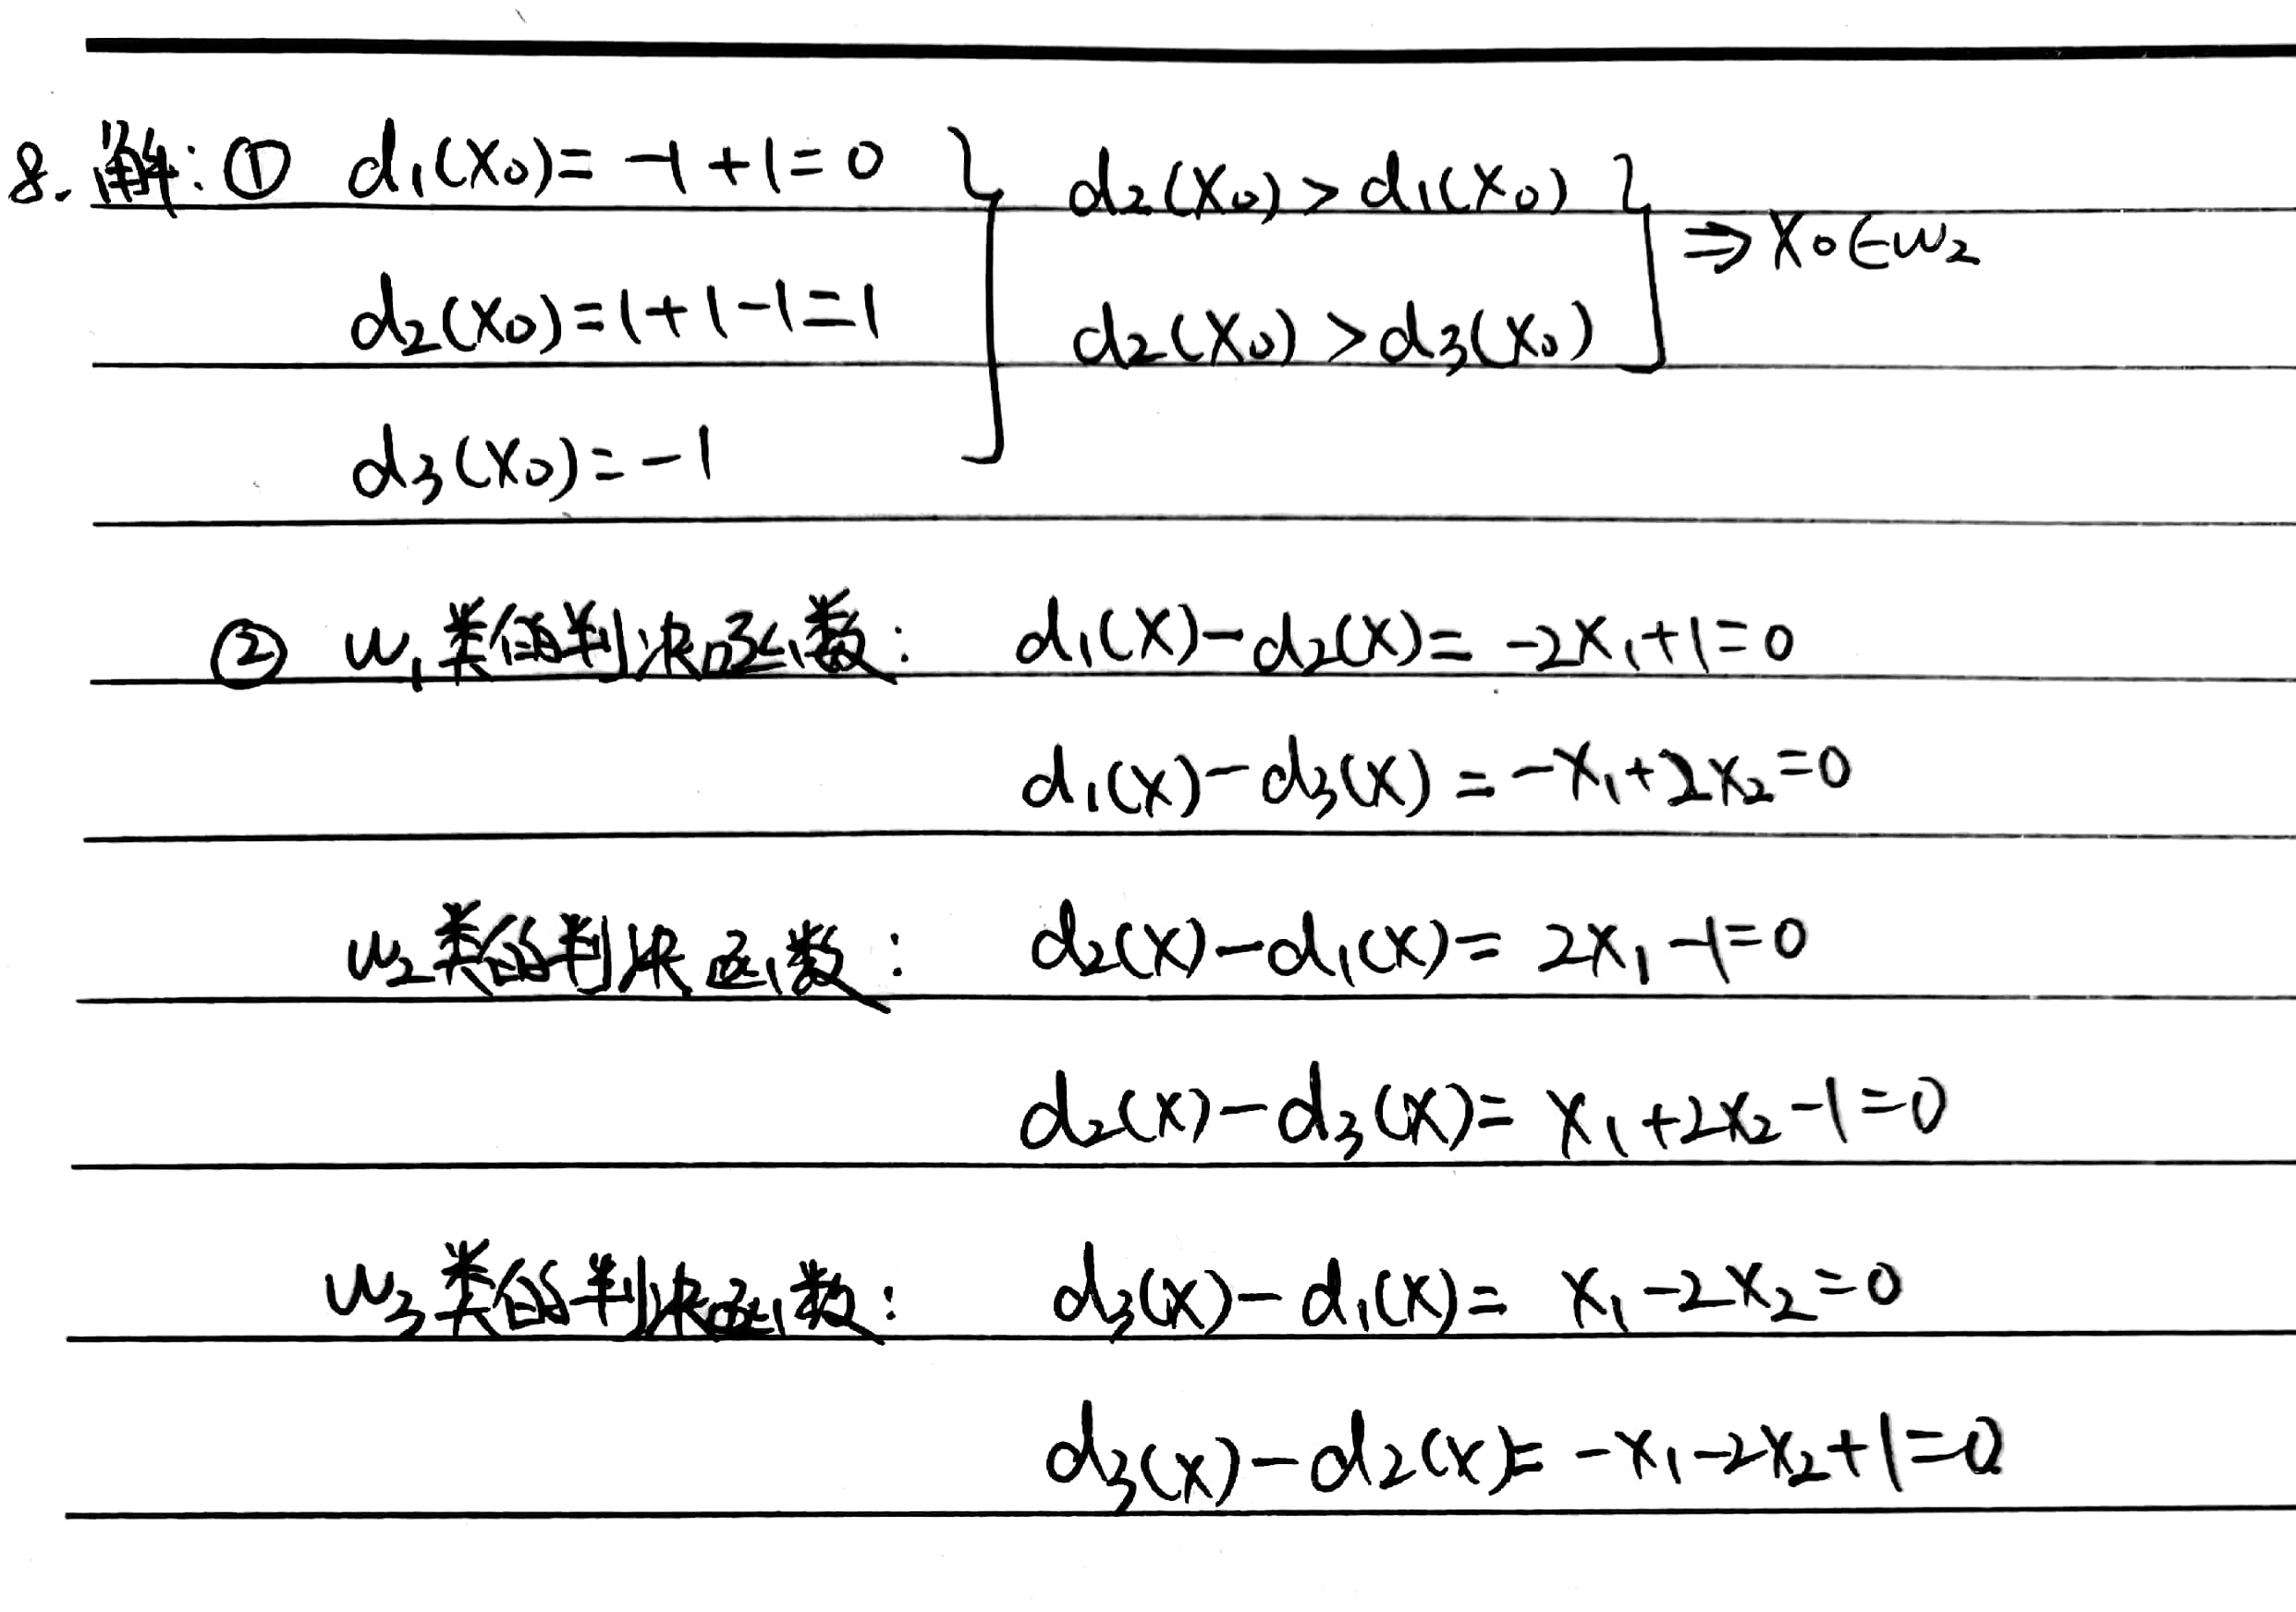 8. 解: ① d₁(X₀)= -1+1=0 } d₂(X₀)>d₁(X₀) } ⇒X₀∈w₂
d₂(X₀)=1+1-1=1 d₂(X₀)>d₃(X₀)
d₃(X₀)=-1
② w₁类的判决函数: d₁(X)-d₂(X)= -2X₁+1=0
d₁(X)-d₃(X)=-X₁+2X₂=0
w₂类的判决函数: d₂(X)-d₁(X)= 2X₁-1=0
d₂(X)-d₃(X)= X₁+2X₂-1=0
w₃类的判决函数: d₃(X)-d₁(X)= X₁-2X₂=0
d₃(X)-d₂(X)= -X₁-2X₂+1=0